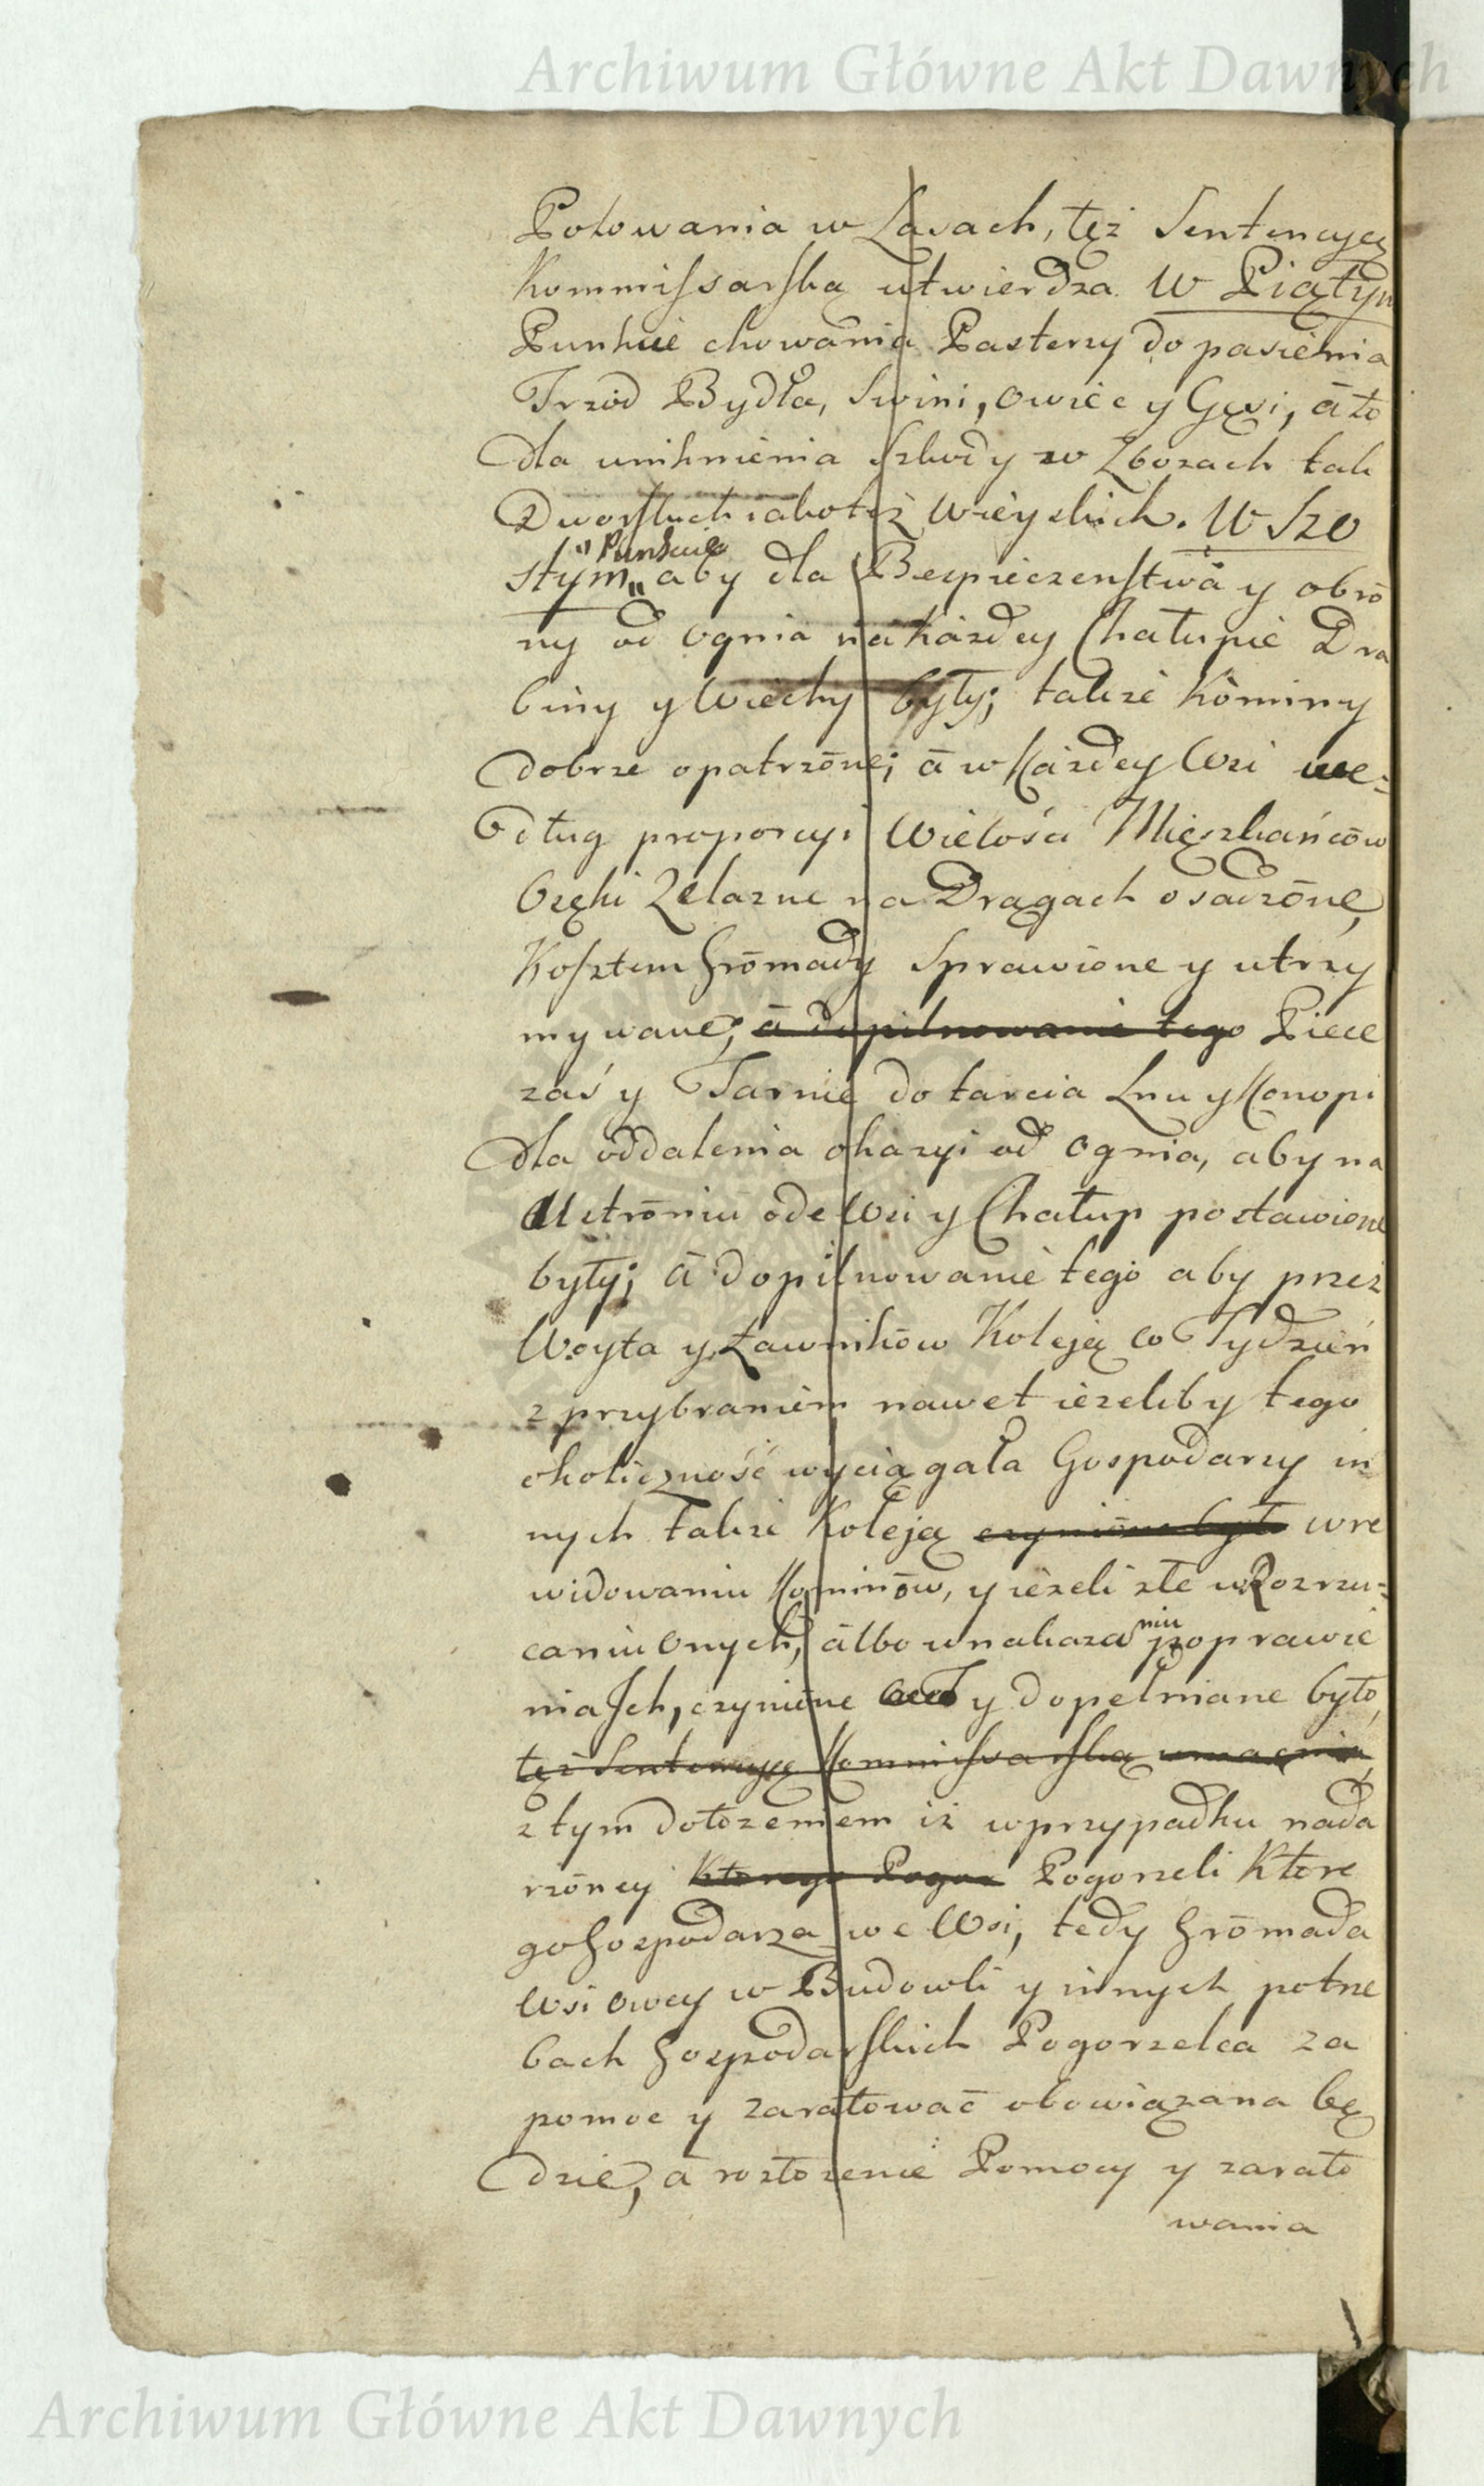 Archiwum Główne Akt Dawnych
Polowania w Lasach, tęż Sentencyę
Kommissarską utwierdza. W Piątym
Punkcie chowania Pasterzy do pasienia
Trzód Bydła, Swini, Owiec y Gęsi, á to
dla uniknienia Szkody w Zbożach tak
Dworskich iako też Wieyskich. W Szo
stym „Punkcie„ aby dla Bezpieczeństwa y obro
ny od ognia na każdey Chałupie Dra
biny y Wiechy były; także Kominy
dobrze opatrzóne; á w każdey Wsi we=
dług proporcyi Wielości Mięszkańców
Osęki Zelazne na Drągach osadzóne,
Kosztem Grómady Sprawione y utrzy
mywane; á dopilnowanie tego Piece
zaś y Tarnie do tarcia Lnu y Konopi
dla oddalenia okazyi od ognia, aby na
Ustróniu ode Wsi y Chałup postawione
były; á dopilnowanie tego aby przez
Woyta y Ławników Koleją co Tydzień
z przybraniem nawet ieżeliby tego
okoliczność wyciągała Gospodarzy in
nych także Koleją czynióne było w re
widowaniu Kominów, y ieżeli złe w Rozrzu=
caniu Onych, álbo w nakazaniu poprawie
nia Jch, czynióne y dopełniane było,
tęż Sentencyę Kommissarską umacnia,
z tym dołożeniem iż w przypadku nada
rzóney Którego Pogor Pogorzeli Które
go Gospodarza we Wsi, tedy Grómada
Wsi Owey w Budowli y innych potrze
bach Gospodarskich Pogorzelca za
pomoc y zaratować obowiązana bę
dzie, á rozłożenie Pomocy y zarato
wania
Archiwum Główne Akt Dawnych